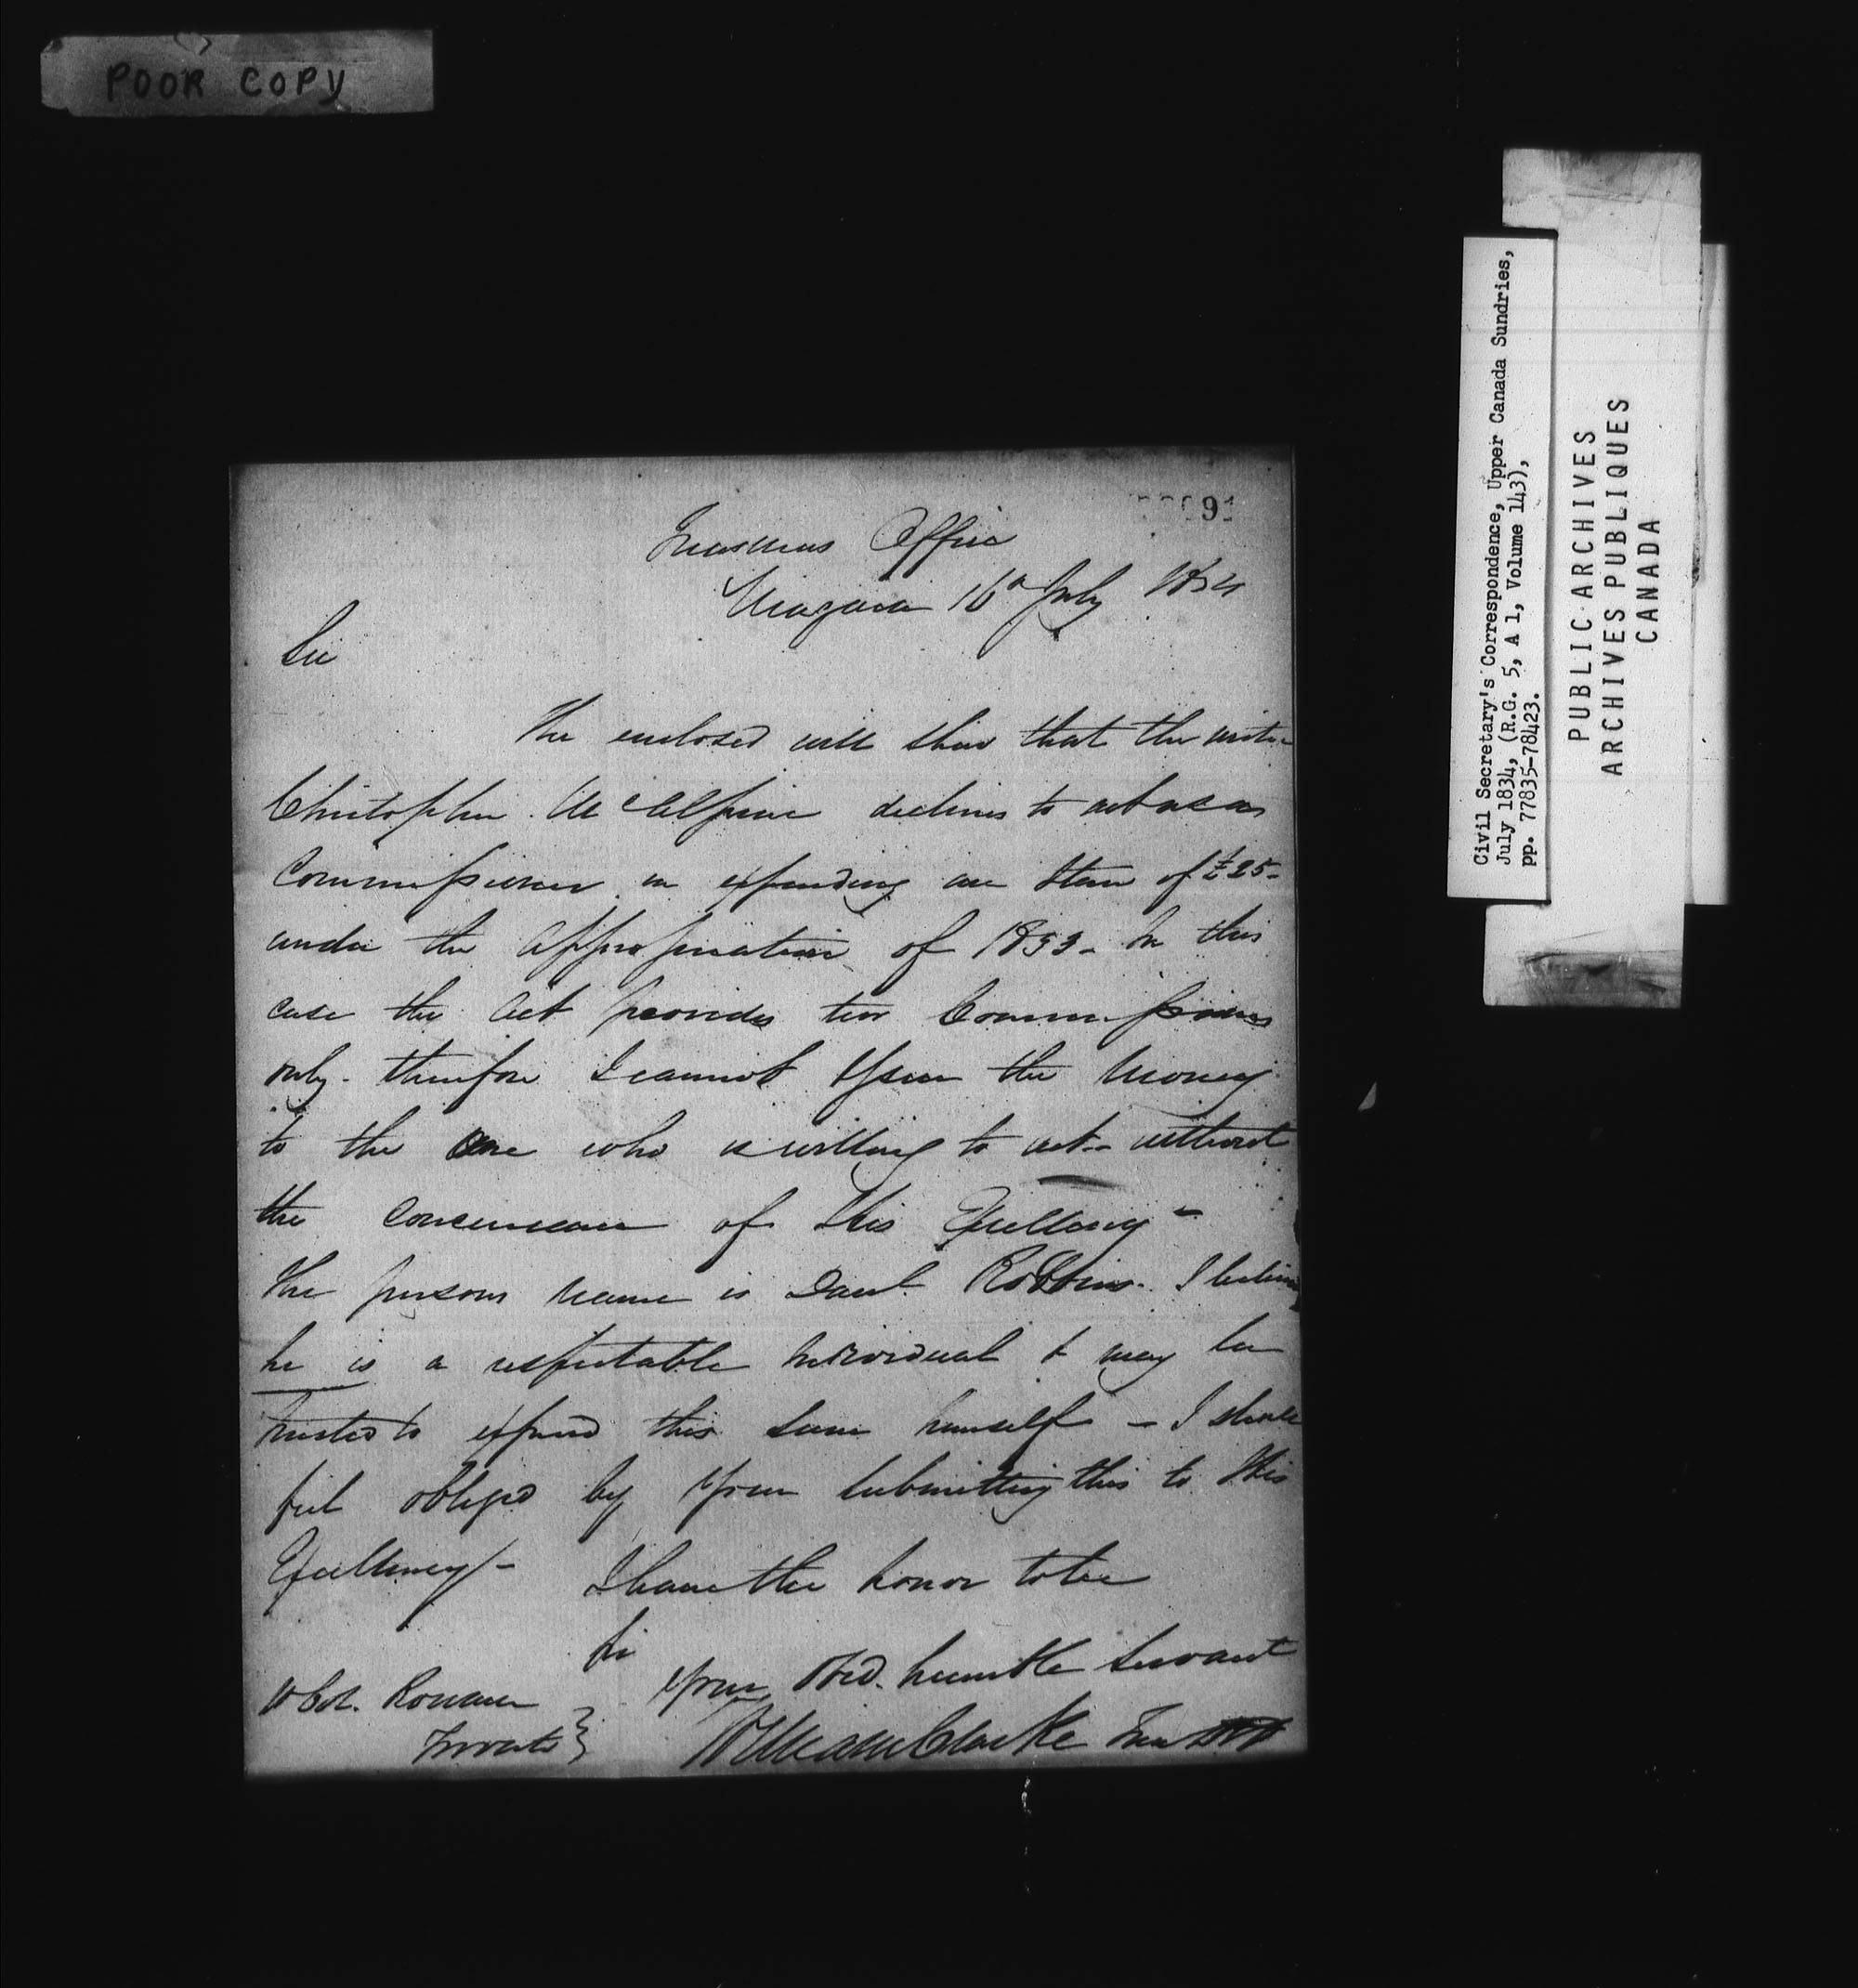 POOR COPY
91
Treasurers Office
Niagara 16th July 1834
Sir
The enclosed will shew that the writer
Christopher McAlpine declines to act as a
Commissioner in expending the Sum of £25-
under the appropriation of 1833- In this
case the act provides two Commissioners
only- therefore I cannot the Money
to the One who is willing to act- without
the concurrence of His Excellency-
The persons name is Danl. Robbins- I believe
he is a respectable individual & may be
trusted to expend this Sum himself - I shall
feel obliged by your submitting this to His
Excellency/-
I have the honor to be
Sir
Your Obed. humble Servant
William Clarke
Col. Rowan
Toronto
Civil Secretary's Correspondence, Upper Canada Sundries,
July 1834, (R.G. 5, A 1, Volume 143),
pp. 77835-78423.
PUBLIC ARCHIVES
ARCHIVES PUBLIQUES
CANADA